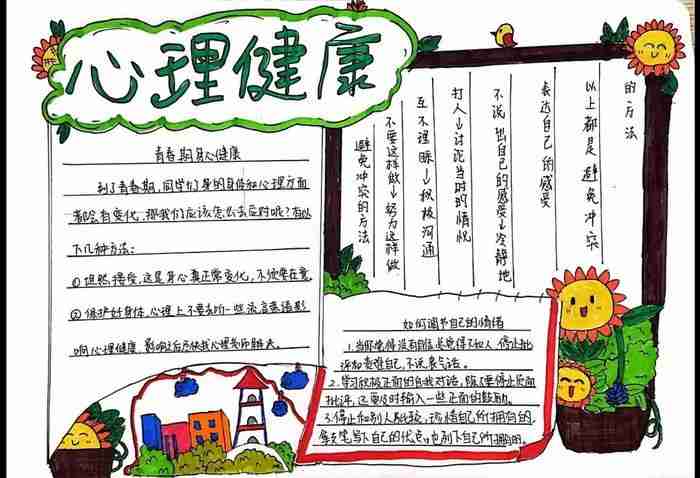 心理健康
青春期身心健康
到了青春期,同学们身的身体和心理方面
都会有变化,那我们应该怎么去应对呢?有以
下几种方法:
①坦然接受,这是身心真正常变化,不须要在意,
②保护好身体,心理上不要去听一些流言蜚语影
响心理健康 影响之后尽快找心理老师解决。
避免冲突的方法
不要这样做→努力这样做
互不理睬→积极沟通
打人→讨论当时的情况
不说出自己的感受→冷静地
表达自己的感受
以上都是避免冲突
的方法
如何调节自己的情绪
1.当你觉得没有自信或觉得不如人 停止批
评和责难自己,不说丧气话。
2.学习积极正面的自我对话,除了要停止负面
批评,还要及时输入一些正面的鼓励。
3.停止和别人比较,珍惜自己所拥有的,
拿支笔写下自己的优点,也列下自己所拥有的。